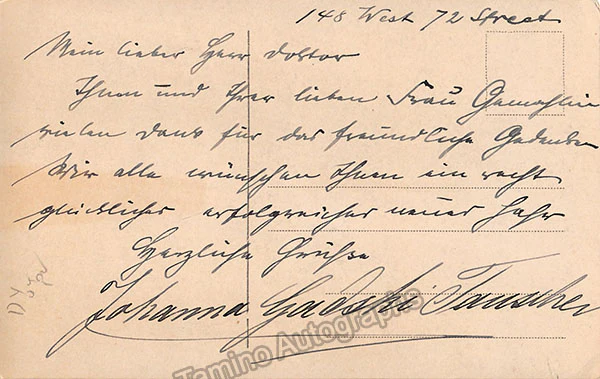 148 West 72 Street
Mein lieber Herr Doktor
Ihnen und Ihrer lieben Frau Gemahlin
vielen Dank für das freundliche Gedenken
Wir alle wünschen Ihnen ein recht
glückliches erfolgreiches neues Jahr
Herzliche Grüsse
Johanna Gadski Tauscher
Tamino Autographs